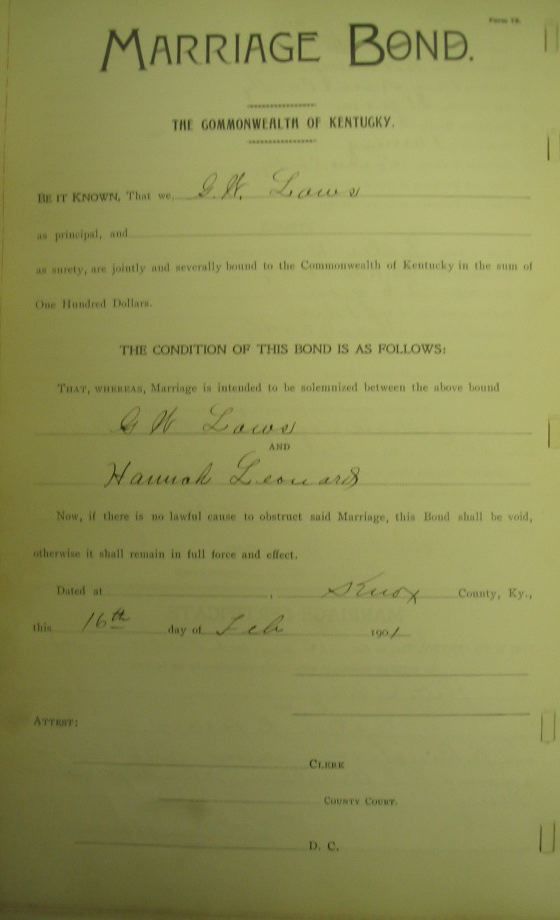 Form 78.
MARRIAGE BOND.
THE COMMONWEALTH OF KENTUCKY.
BE IT KNOWN, That we, G. W. Laws
as principal, and
as surety, are jointly and severally bound to the Commonwealth of Kentucky in the sum of
One Hundred Dollars.
THE CONDITION OF THIS BOND IS AS FOLLOWS:
THAT, WHEREAS, Marriage is intended to be solemnized between the above bound
G W Laws
AND
Hannah Leonard
Now, if there is no lawful cause to obstruct said Marriage, this Bond shall be void,
otherwise it shall remain in full force and effect.
Dated at , Knox County, Ky.,
this 16th day of Feb 1901
ATTEST:
CLERK
COUNTY COURT.
D. C.